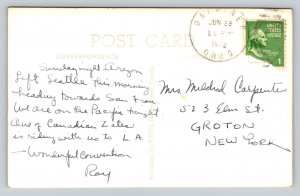 POST CARD
CORRESPONDENCE
Sunday night Oregon
Left Seattle this morning
heading towards San Fran.
We are on the Pacific tonight.
One of Canadian Zetas
is riding with us to L A.
Wonderful Convention
Ray
JUN 28
OREG
UNITED STATES
POSTAGE
1
Mrs Mildred Carpenter
523 Elm St.
GROTON
NEW YORK